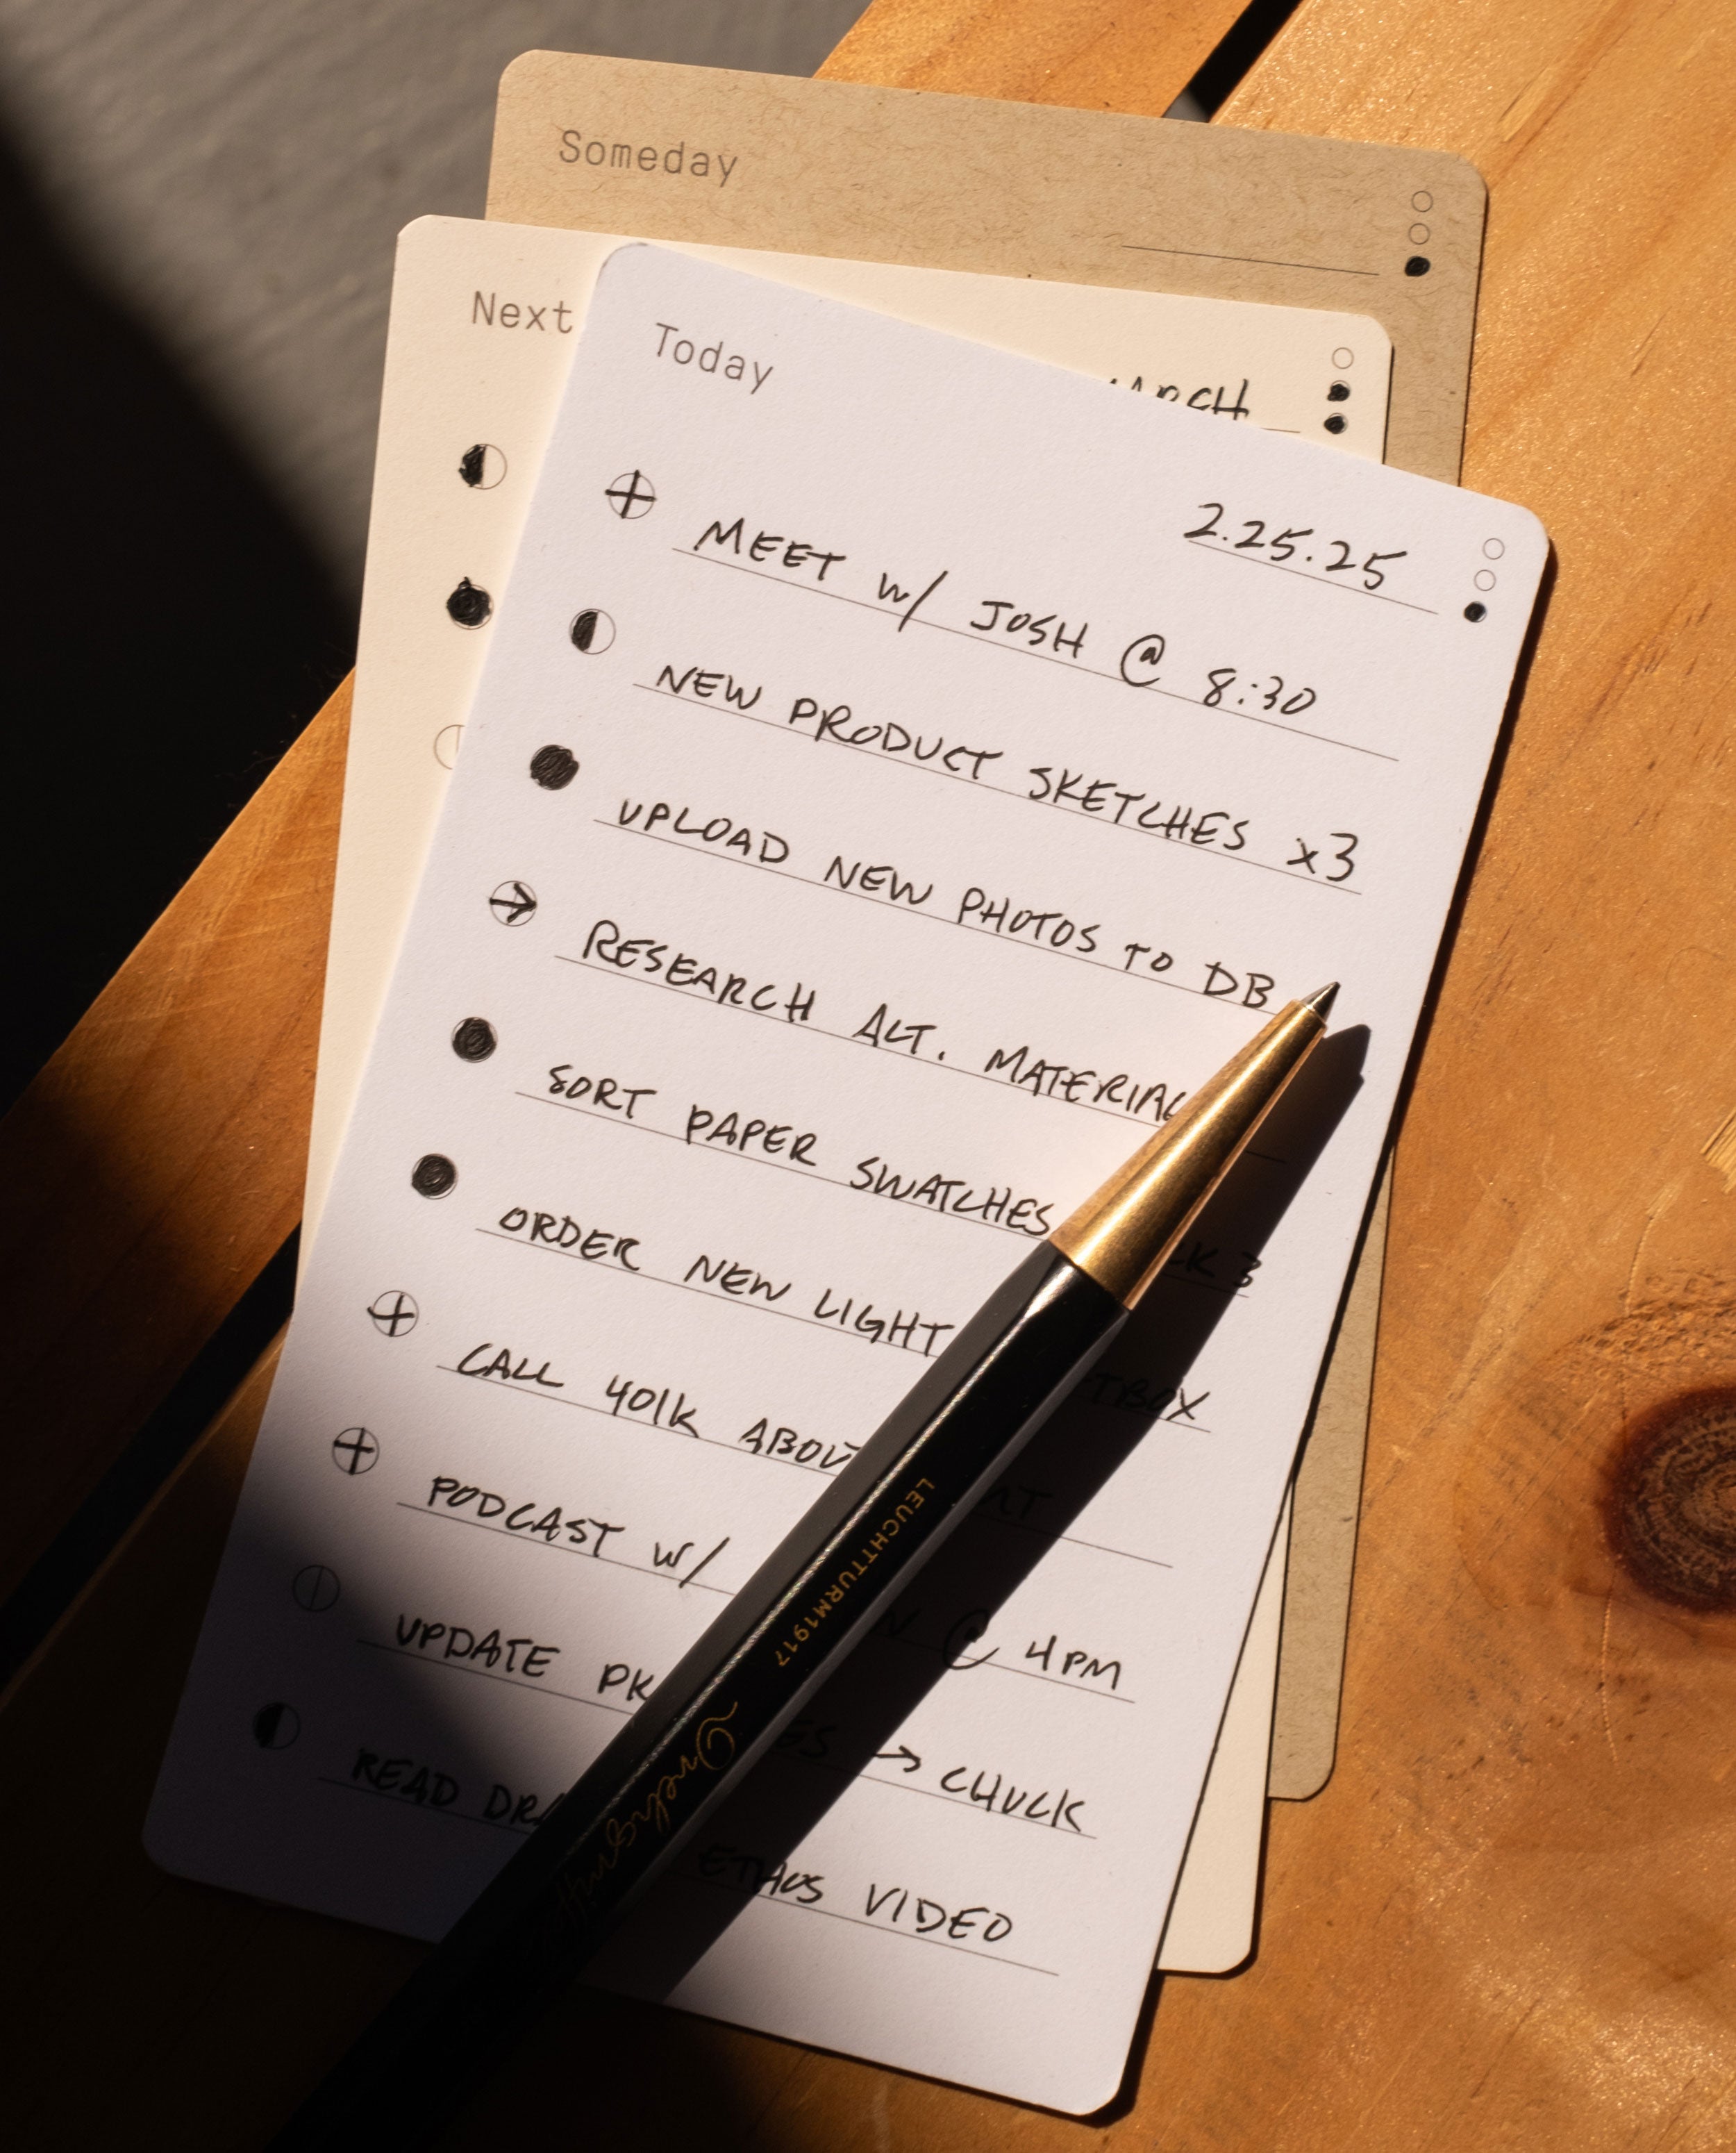 Someday
Next
Today
2.25.25
MEET w/ JOSH @ 8:30
NEW PRODUCT SKETCHES x3
UPLOAD NEW PHOTOS TO DB
RESEARCH ALT. MATERIAL
SORT PAPER SWATCHES 3
ORDER NEW LIGHT TBOX
CALL 401K ABOU
PODCAST w/ @ 4PM
UPDATE PK → CHUCK
READ DRA ETHOS VIDEO
LEUCHTTURM1917